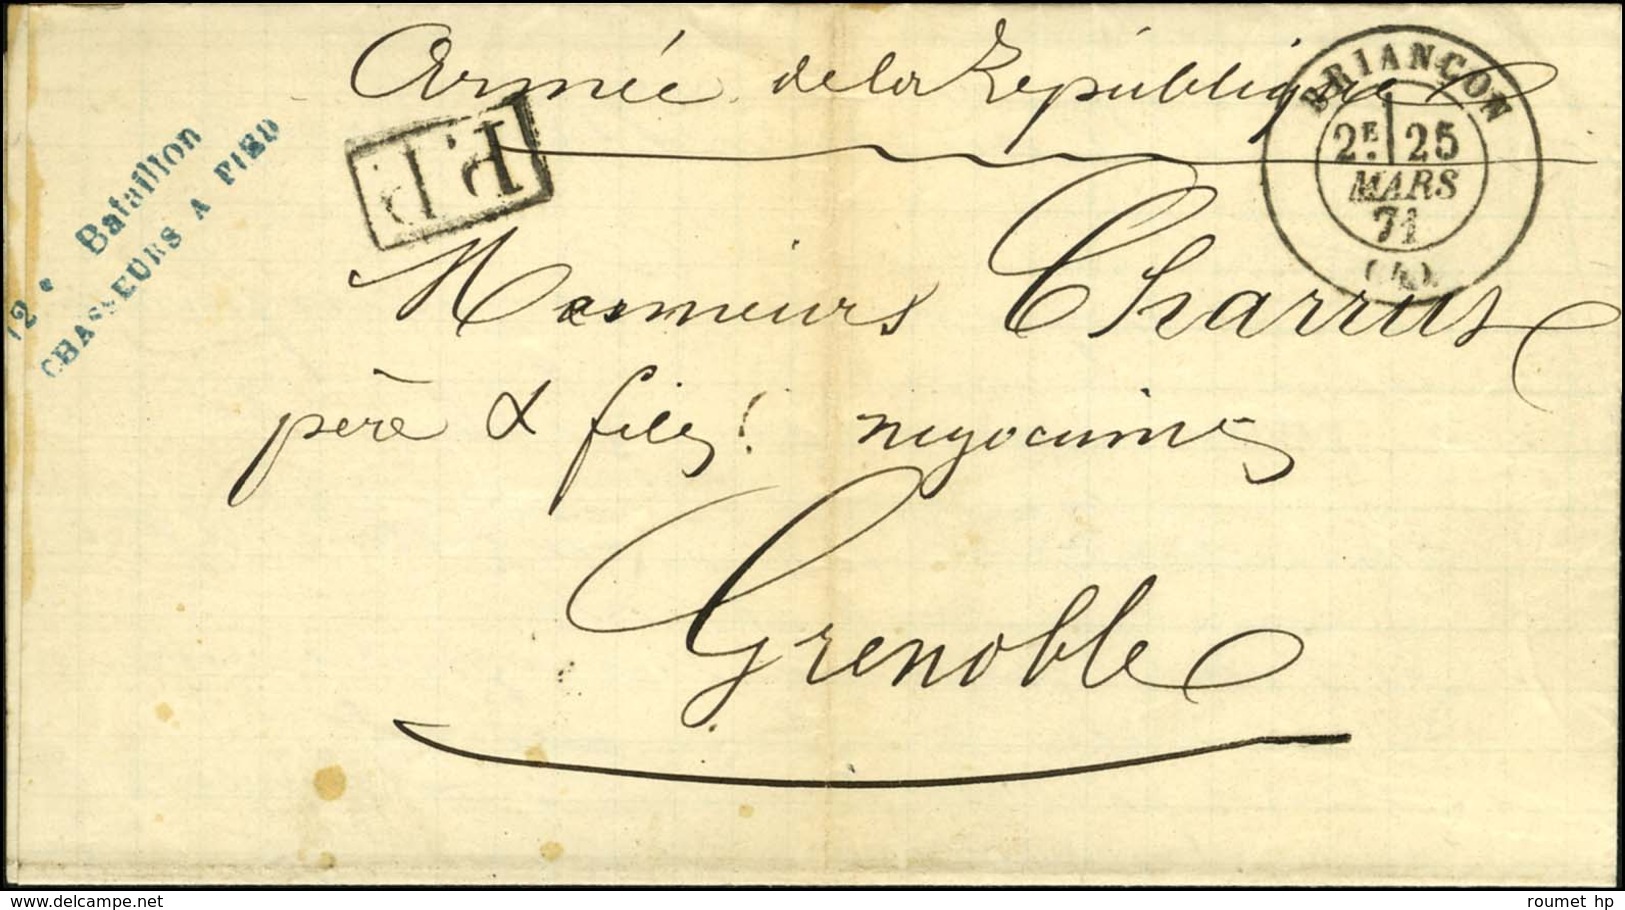 Armée de la République
BRIANÇON
2E 25
MARS
71
(4)
P.P.
12e Bataillon
CHASSEURS A PIED
Messieurs Charrut
père & fils négociants
Grenoble
roumet hp